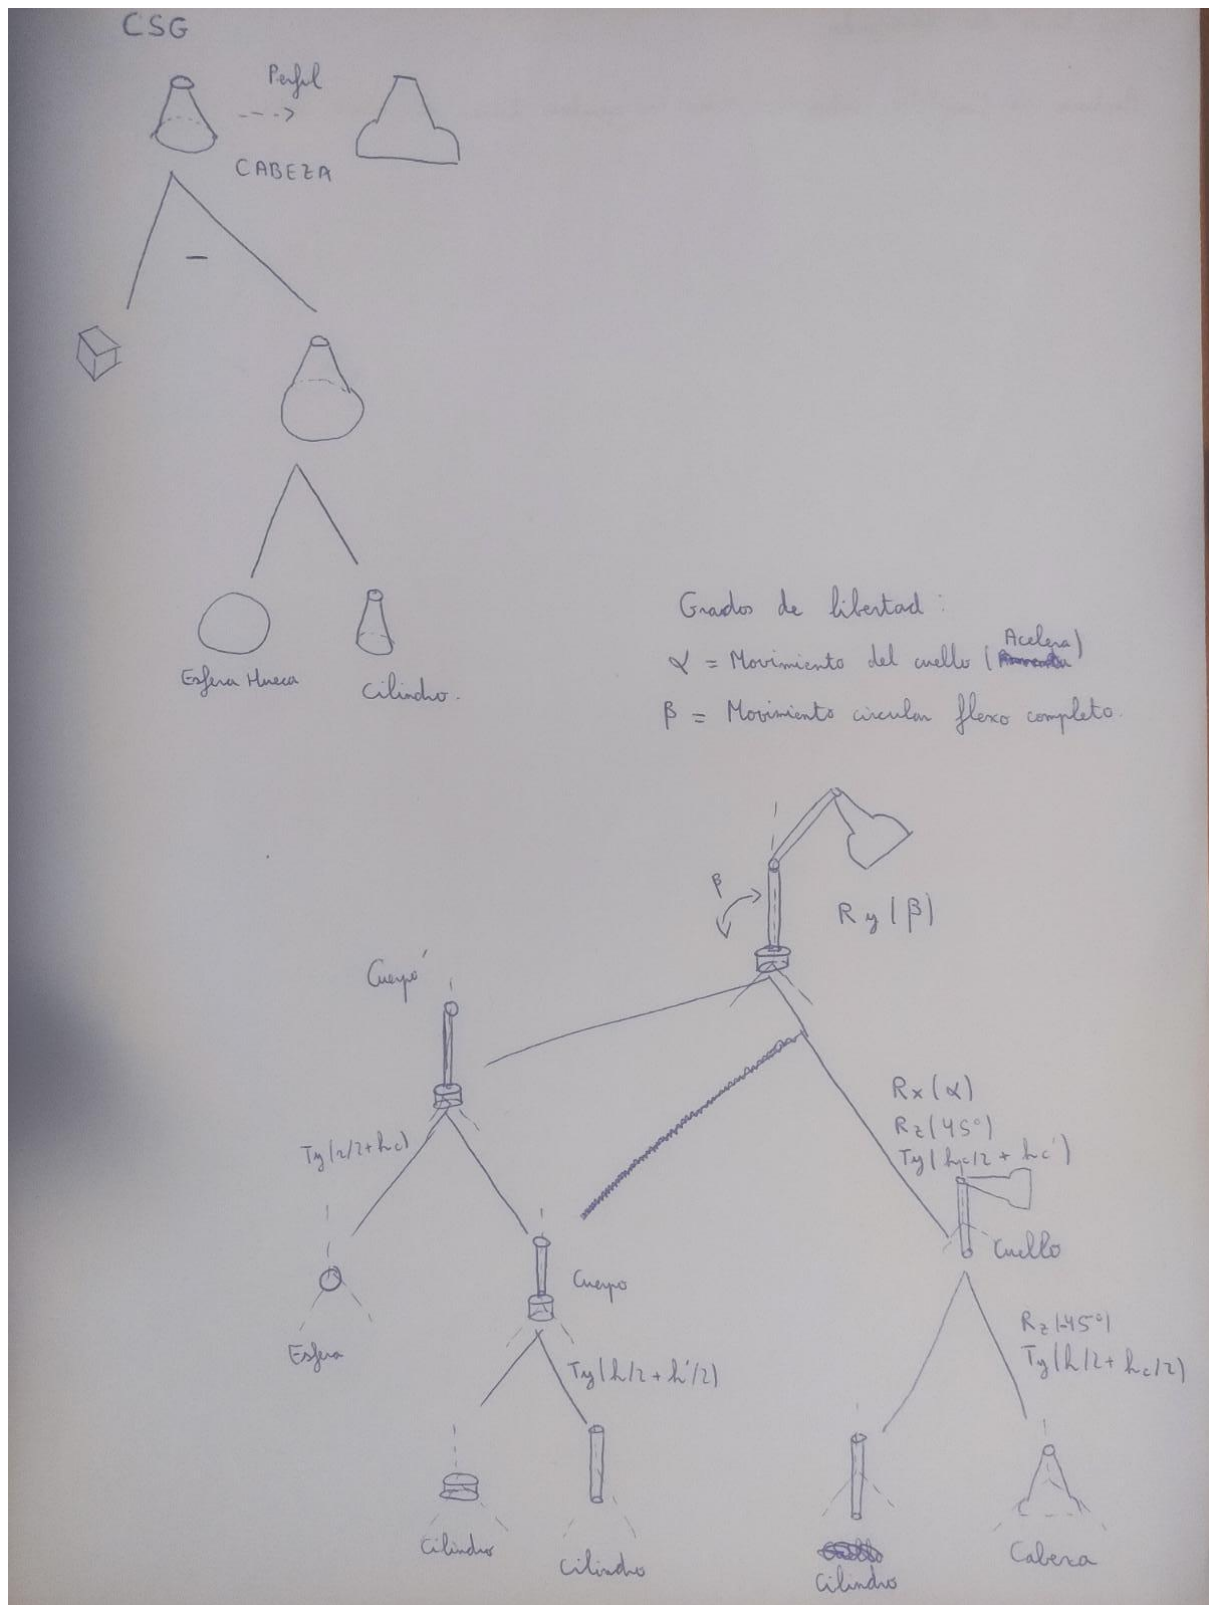 CSG
Perfil
CABEZA
—
Esfera Hueca
Cilindro.
Grados de libertad:
α = Movimiento del cuello (Acelera)
β = Movimiento circular flexo completo.
β
Ry(β)
Cuerpo'
Rx(α)
Rz(45°)
Ty(hc/2 + hc')
Ty(r/2+hc)
Cuello
Cuerpo
Esfera
Rz(-45°)
Ty(h/2 + hc/2)
Ty(h/2 + h'/2)
Cilindro
Cilindro
Cilindro
Cabeza